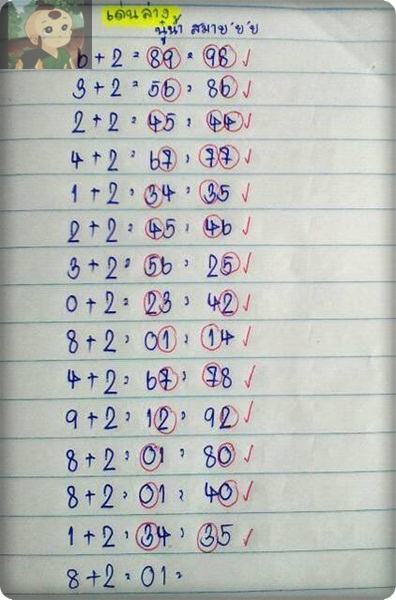 เด่นล่าง
ปู่น้ำ สบาย ย ย
6+2 = 89 = 98 ✓
3+2 = 56 = 86 ✓
2+2 = 45 = 44 ✓
4+2 = 67 = 77 ✓
1+2 = 34 = 35 ✓
2+2 = 45 = 46 ✓
3+2 = 56 = 25 ✓
0+2 = 23 = 42 ✓
8+2 = 01 = 14 ✓
4+2 = 67 = 78 ✓
9+2 = 12 = 92 ✓
8+2 = 01 = 80 ✓
8+2 = 01 = 40 ✓
1+2 = 34 = 35 ✓
8+2 = 01 =